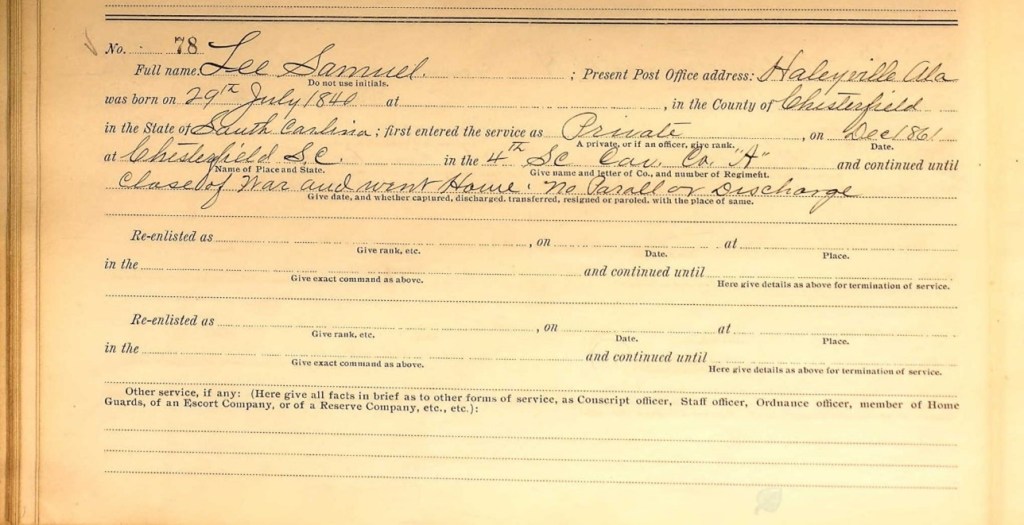 No. 78
Full name. Lee Samuel. ; Present Post Office address: Haleyville Ala
Do not use initials.
was born on 29th July 1840 at , in the County of Chesterfield
in the State of South Carlina ; first entered the service as Private , on Dec 1861
A private, or if an officer, give rank. Date.
at Chesterfield S.C. in the 4th SC Cav. Co. "A" and continued until
Name of Place and State. Give name and letter of Co., and number of Regiment.
Close of War and went Home. No Paroll or Discharge
Give date, and whether captured, discharged, transferred, resigned or paroled, with the place of same.
Re-enlisted as , on at
Give rank, etc. Date. Place.
in the and continued until
Give exact command as above. Here give details as above for termination of service.
Re-enlisted as , on at
Give rank, etc. Date. Place.
in the and continued until
Give exact command as above. Here give details as above for termination of service.
Other service, if any: (Here give all facts in brief as to other forms of service, as Conscript officer, Staff officer, Ordnance officer, member of Home
Guards, of an Escort Company, or of a Reserve Company, etc., etc.):